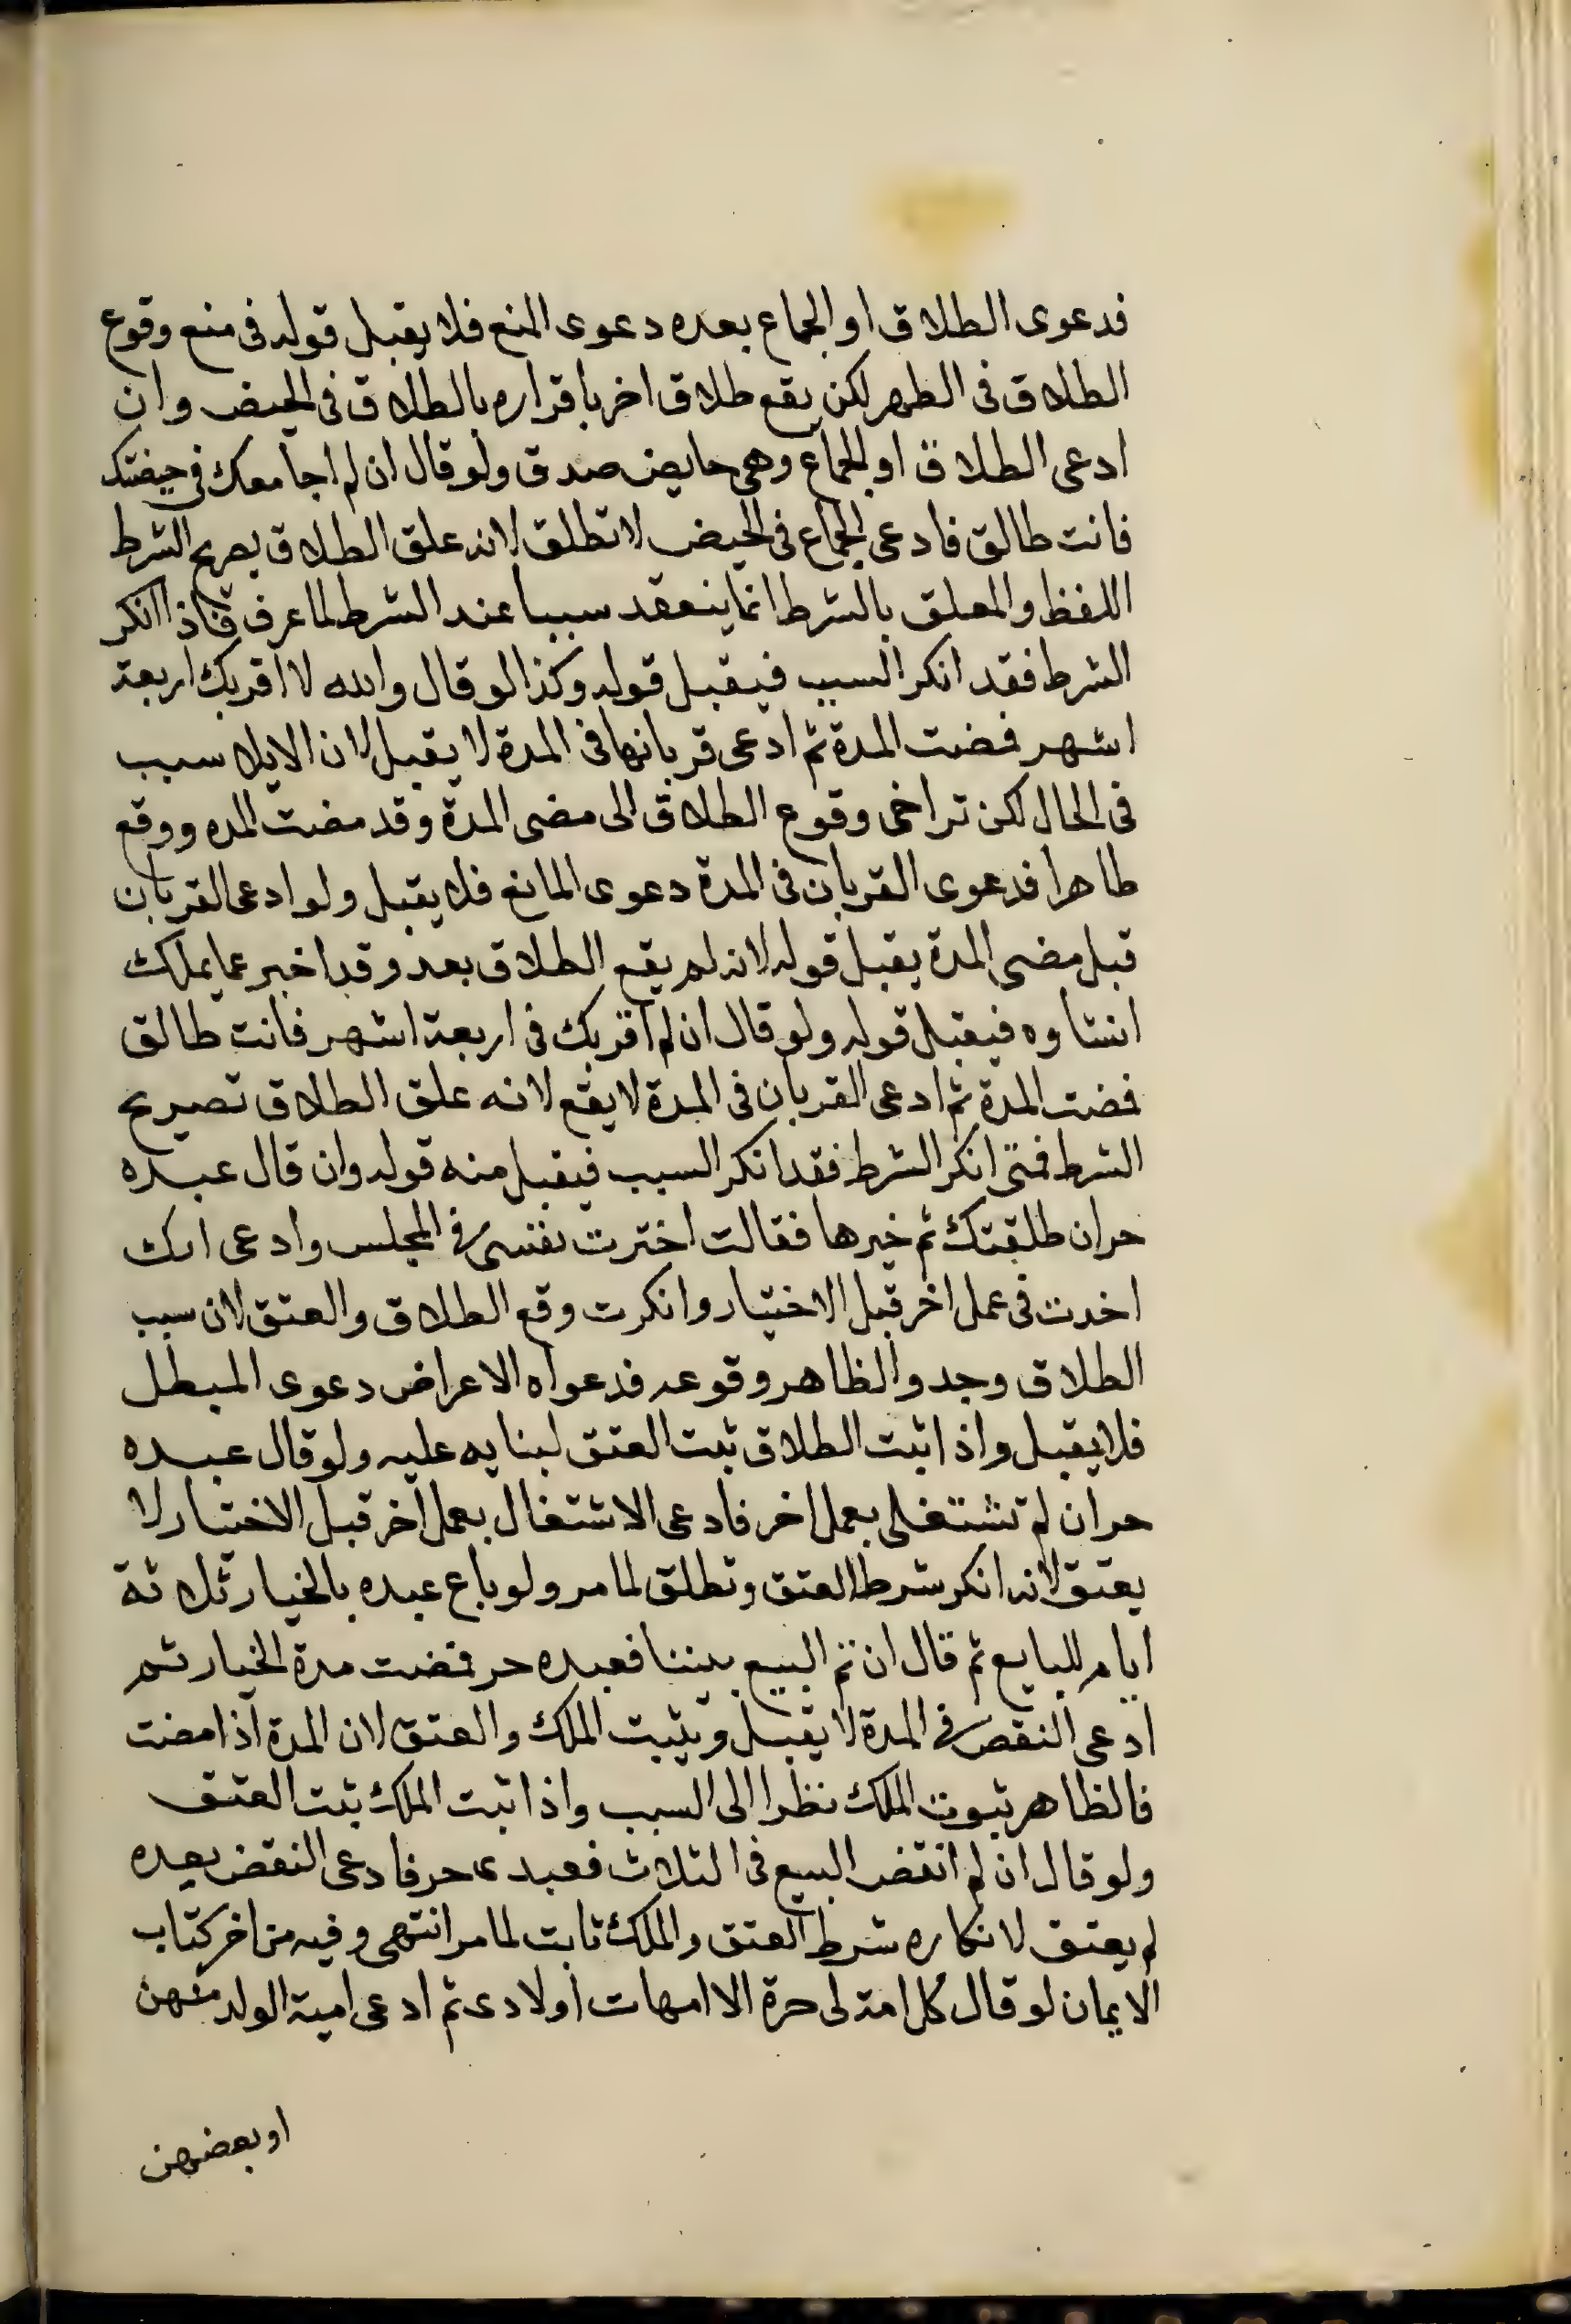 فدعوى الطلاق او الجماع بعده دعوى المنع فلا يقبل قوله فى منع وقوع
الطلاق فى الطهر لكن يقع طلاق اخر باقراره بالطلاق فى الحيض وان
ادعى الطلاق او الجماع وهى حايض صدق ولو قال ان لم اجامعك فى حيضتك
فانت طالق فادعى الجماع فى الحيض لا تطلق لانه علق الطلاق بصريح الشرط
اللفظ والمعلق بالشرط انما ينعقد سببا عند الشرط لما عرف فاذا انكر
الشرط فقد انكر السبب فيقبل قوله وكذا لو قال والله لا اقربك اربعة
اشهر فمضت المدة ثم ادعى قربانها فى المدة لا يقبل لان الايلا سبب
فى الحال لكن تراخى وقوع الطلاق الى مضى المدة وقد مضت المده ووقع
طاهرا فدعوى القربان فى المدة دعوى المانع فلا يقبل ولو ادعى القربان
قبل مضى المدة يقبل قوله لانه لم يقع الطلاق بعد وقد اخبر عما يملك
انشاوه فيقبل قوله ولو قال ان لم اقربك فى اربعة اشهر فانت طالق
فمضت المدة ثم ادعى القربان فى المدة لا يقع لانه علق الطلاق تصريح
الشرط فمتى انكر الشرط فقد انكر السبب فيقبل منه قوله وان قال عبده
حر ان طلقتك ثم خيرها فقالت اخترت نفسى فى المجلس وادعى انك
اخدت فى عمل اخر قبل الاختيار وانكرت وقع الطلاق والعتق لان سبب
الطلاق وجد والظاهر وقوعه فدعواه الاعراض دعوى المبطل
فلا يقبل واذا ثبت الطلاق ثبت العتق لبنايه عليه ولو قال عبده
حر ان لم تشتغلى بعمل اخر فادعى الاشتغال بعمل اخر قبل الاختيار لا
يعتق لانه انكر شرط العتق وتطلق لما مر ولو باع عبده بالخيار ثلاثة
ايام للبايع ثم قال ان تم البيع بيننا فعبده حر فمضت مدة الخيار ثم
ادعى النقص فى المدة لا يقبل ويثبت الملك والعتق لان المدة اذا مضت
فالظاهر ثبوت الملك نظرا الى السبب واذا ثبت الملك ثبت العتق
ولو قال ان لم انقض البيع فى الثلاث فعبدى حر فادعى النقض بعده
لم يعتق لانكاره شرط العتق والملك ثابت لما مر انتهى وفيه من اخر كتاب
الايمان لو قال كل امة لى حرة الا امهات اولادى ثم ادعى امية الولد منهن
او بعضهن